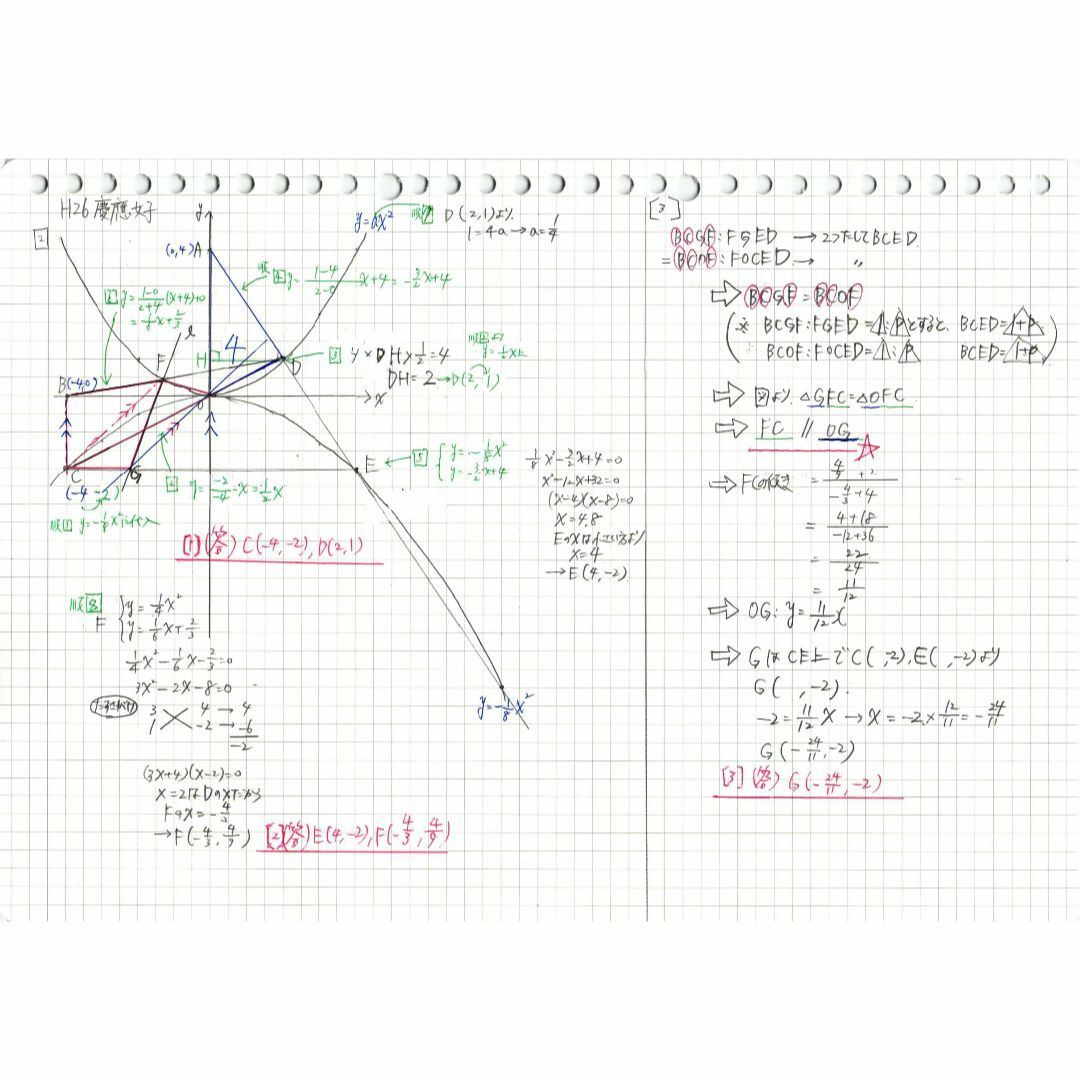 H26 慶應女子
2
y
y=ax²
(0,4)A
順7 D(2,1)より
1=4a→a=1/4
順4 y=(1-4)/(2-0)x+4=-3/2x+4
順6 y=(1-0)/(2+4)(x+4)+0
=1/6x+2/3
l
4
H
D
F
B(-4,0)
O
x
順3 4×DH×1/2=4
DH=2→D(2,1)
y=1/2x上
C
G
E
(-4,-2)
順2 y=-2/-4x=1/2x
順1 y=-1/8x²に代入
順5 {y=-1/8x²
y=-3/2x+4
1/8x²-3/2x+4=0
x²-12x+32=0
(x-4)(x-8)=0
x=4,8
Eのxは小さいほうより
x=4
→E(4,-2)
[1](答) C(-4,-2), D(2,1)
順8
F {y=1/4x²
y=1/6x+2/3
1/4x²-1/6x-2/3=0
3x²-2x-8=0
たすきがけ
3 4→4
1 -2→-6
-2
(3x+4)(x-2)=0
x=2はDのxだから
Fのx=-4/3
→F(-4/3, 4/9)
[2](答) E(4,-2), F(-4/3, 4/9)
y=-1/8x²
[3]
BCGF:FGED →2つたしてBCED
=BCOF:FOCED→ 〃
⇨BCGF=BCOF
(※ BCGF:FGED=1:pとすると、BCED=1+p
BCOF:FOCED=1:p BCED=1+p)
⇨図より △GFC=△OFC
⇨FC // OG ☆
⇨FCの傾き=(4/9+2)/(-4/3+4)
=(4+18)/(-12+36)
=22/24
=11/12
⇨OG:y=11/12x
⇨GはCE上でC( ,-2),E( ,-2)より
G( ,-2).
-2=11/12x→x=-2×12/11=-24/11
G(-24/11,-2)
[3](答) G(-24/11,-2)